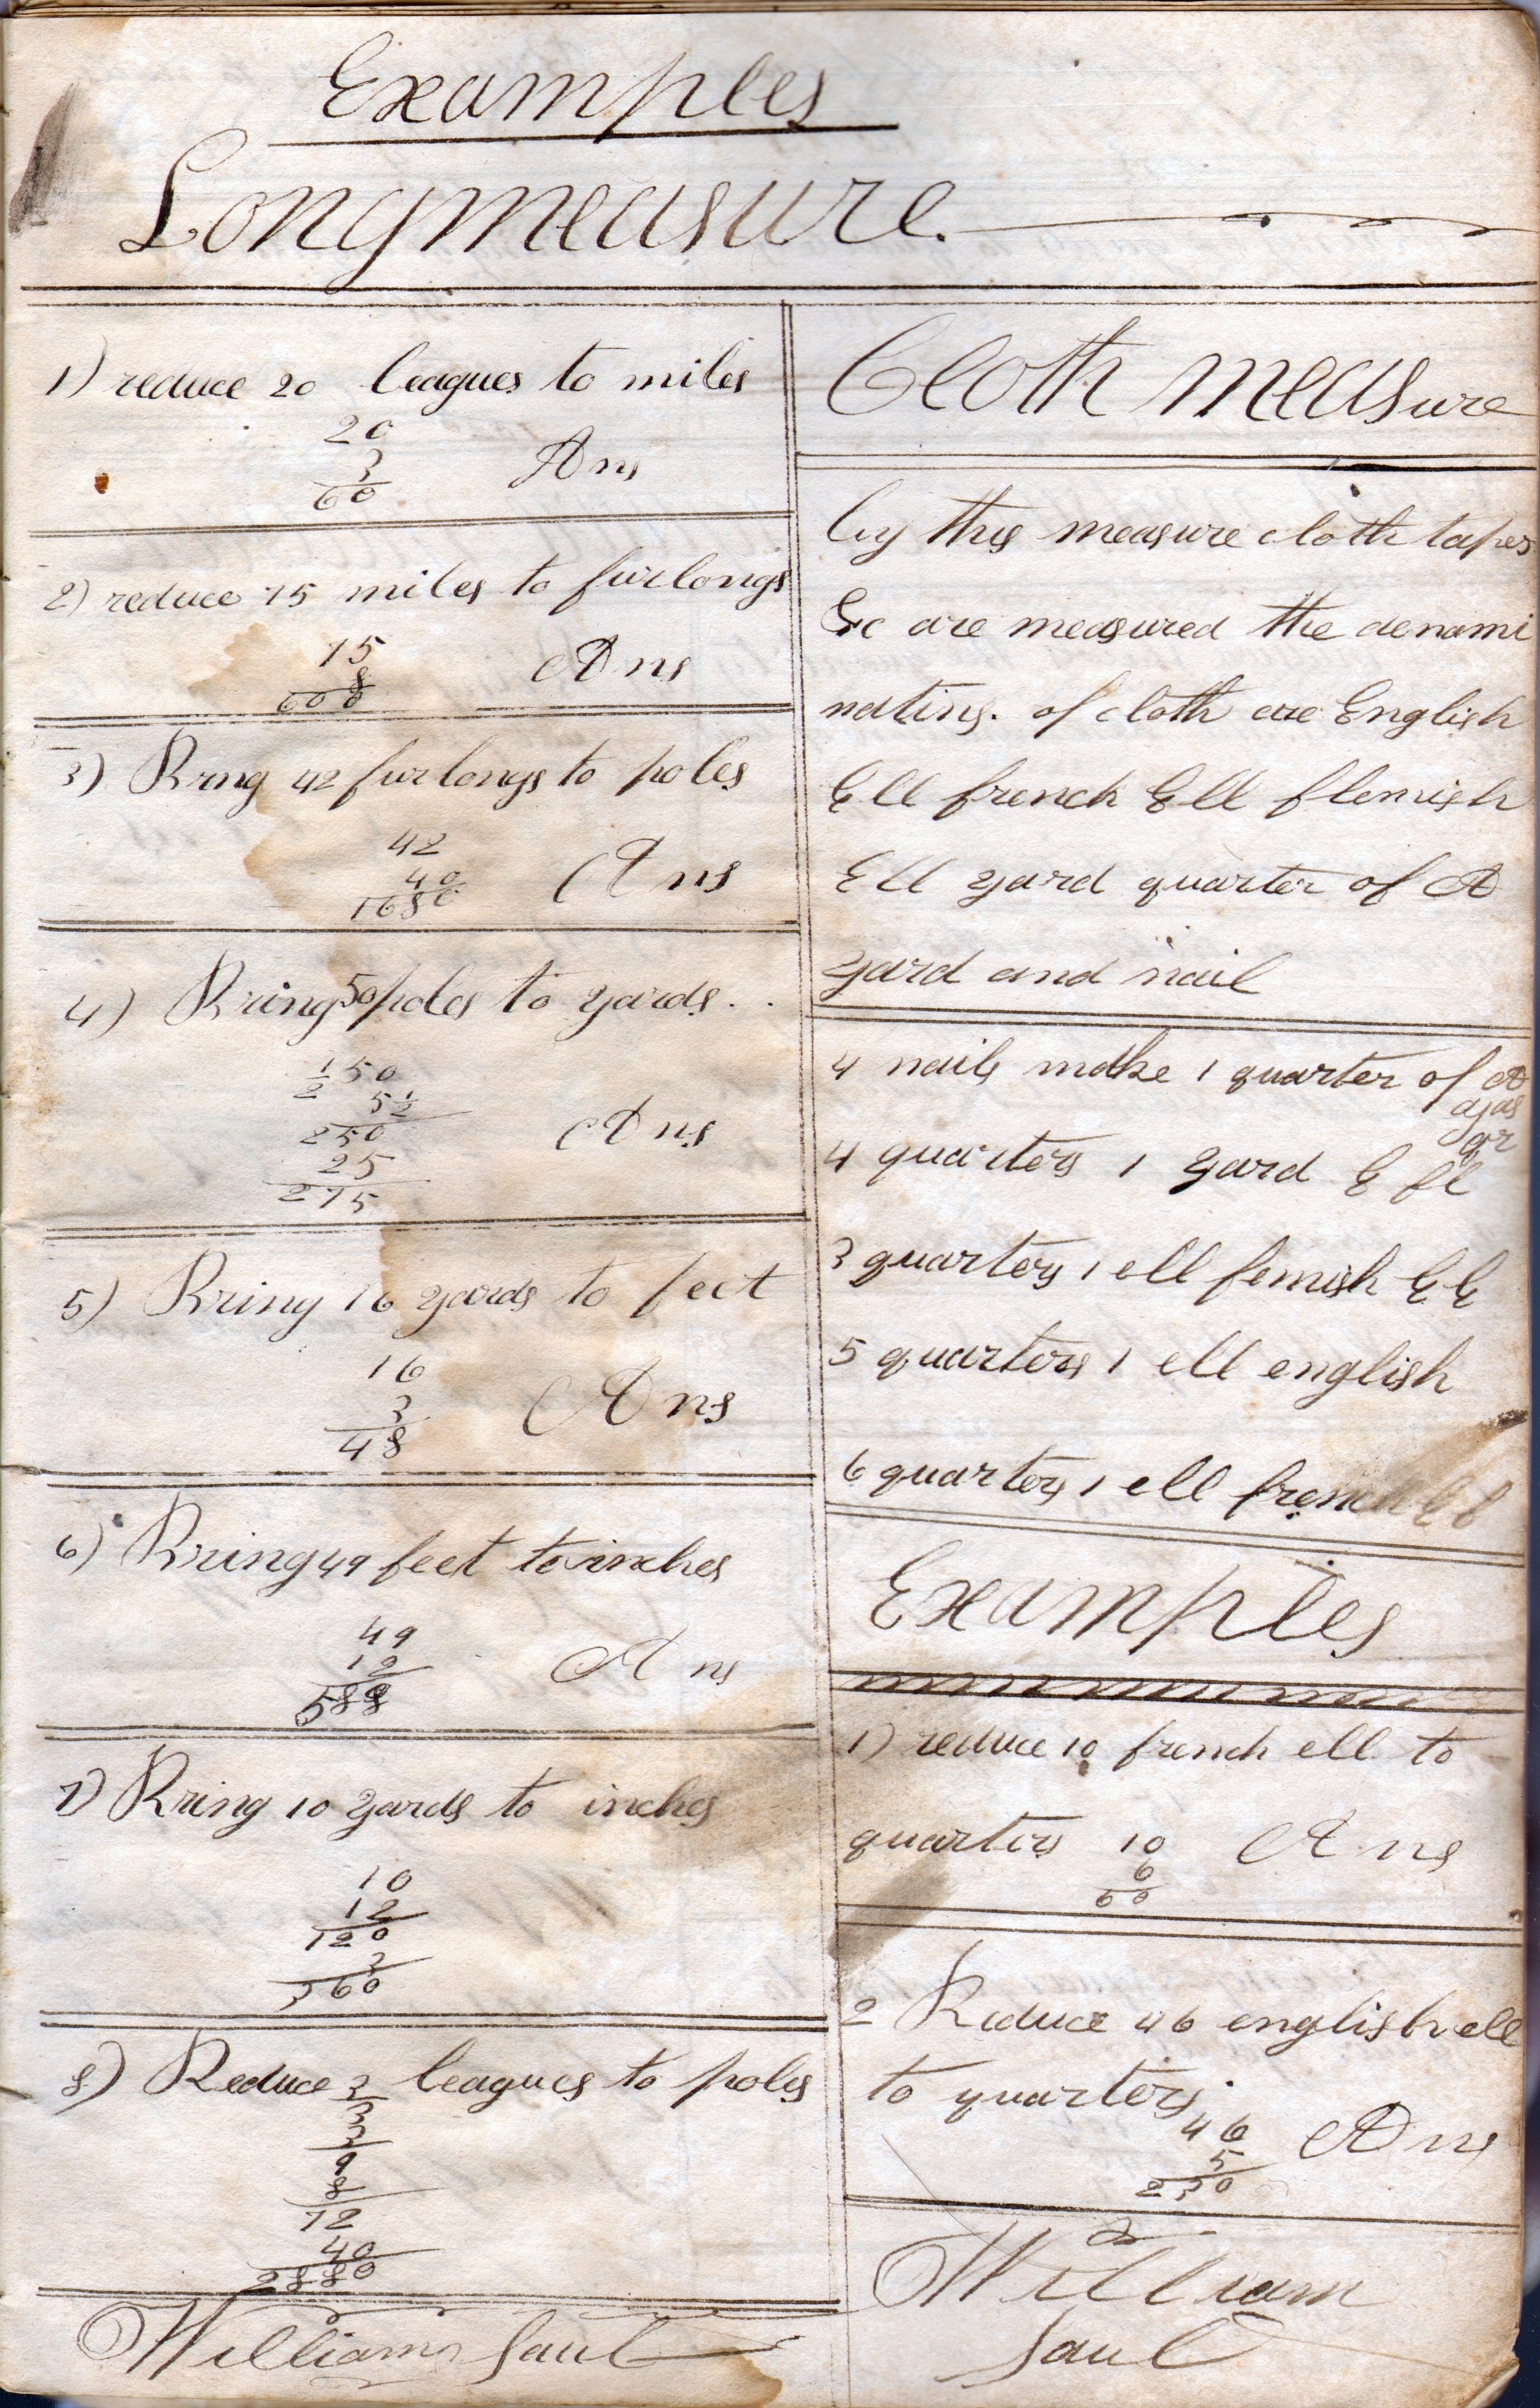 Examples
Longmeasure.
1) reduce 20 leagues to miles
20
3
60
Ans
2) reduce 75 miles to furlongs
75
8
600
Ans
3) Bring 42 furlongs to poles
42
40
1680
Ans
4) Bring 50 poles to yards..
1/2 50
5 1/2
250
25
275
Ans
5) Bring 16 yards to feet
16
3
48
Ans
6) Bring 49 feet to inches
49
12
588
Ans
7) Bring 10 yards to inches
10
12
120
3
360
8) Reduce 3 leagues to poles
3
3
9
8
72
40
2880
William Saul
Cloth measure
by this measure cloth tapes
&c are measured the denomi
nations. of cloth are English
Ell french Ell flemish
Ell yard quarter of A
yard and nail
4 nails make 1 quarter of A
qr
4 quarters 1 yard E fl
3 quarters 1 ell femish E E
5 quarters 1 ell english
6 quarters 1 ell french E f
Examples
1) reduce 10 french ell to
quarters 10 Ans
6
60
2 Reduce 46 english ell
to quarters.
46
5
230
Ans
William
Saul